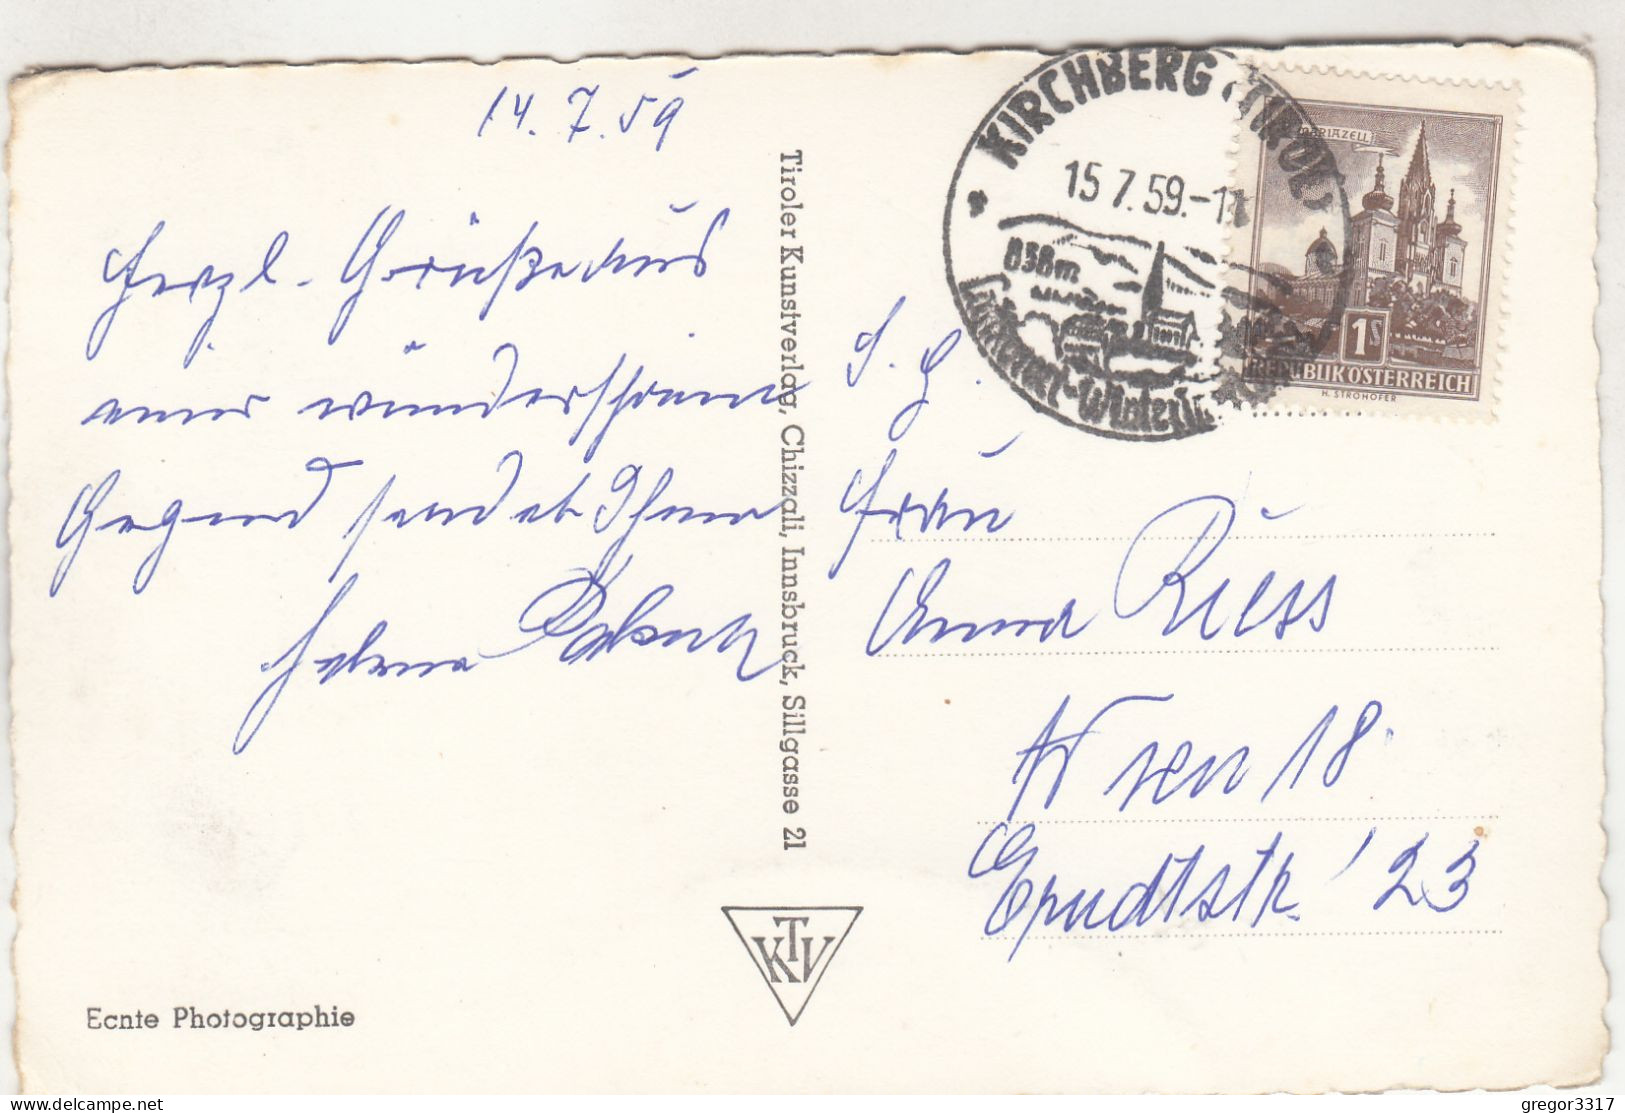 14.7.59
Herzl. Grüße aus
einer wunderschönen
Gegend sendet Ihnen
Tiroler Kunstverlag, Chizzali, Innsbruck, Sillgasse 21
KIRCHBERG (TIROL)
15.7.59.-11
838m
Sommer-Winter
MARIAZELL
1S
REPUBLIK ÖSTERREICH
H. STROHOFER
S. g.
Frau
Anna Riess
Wien 18
23
KTV
Echte Photographie
gregor3317